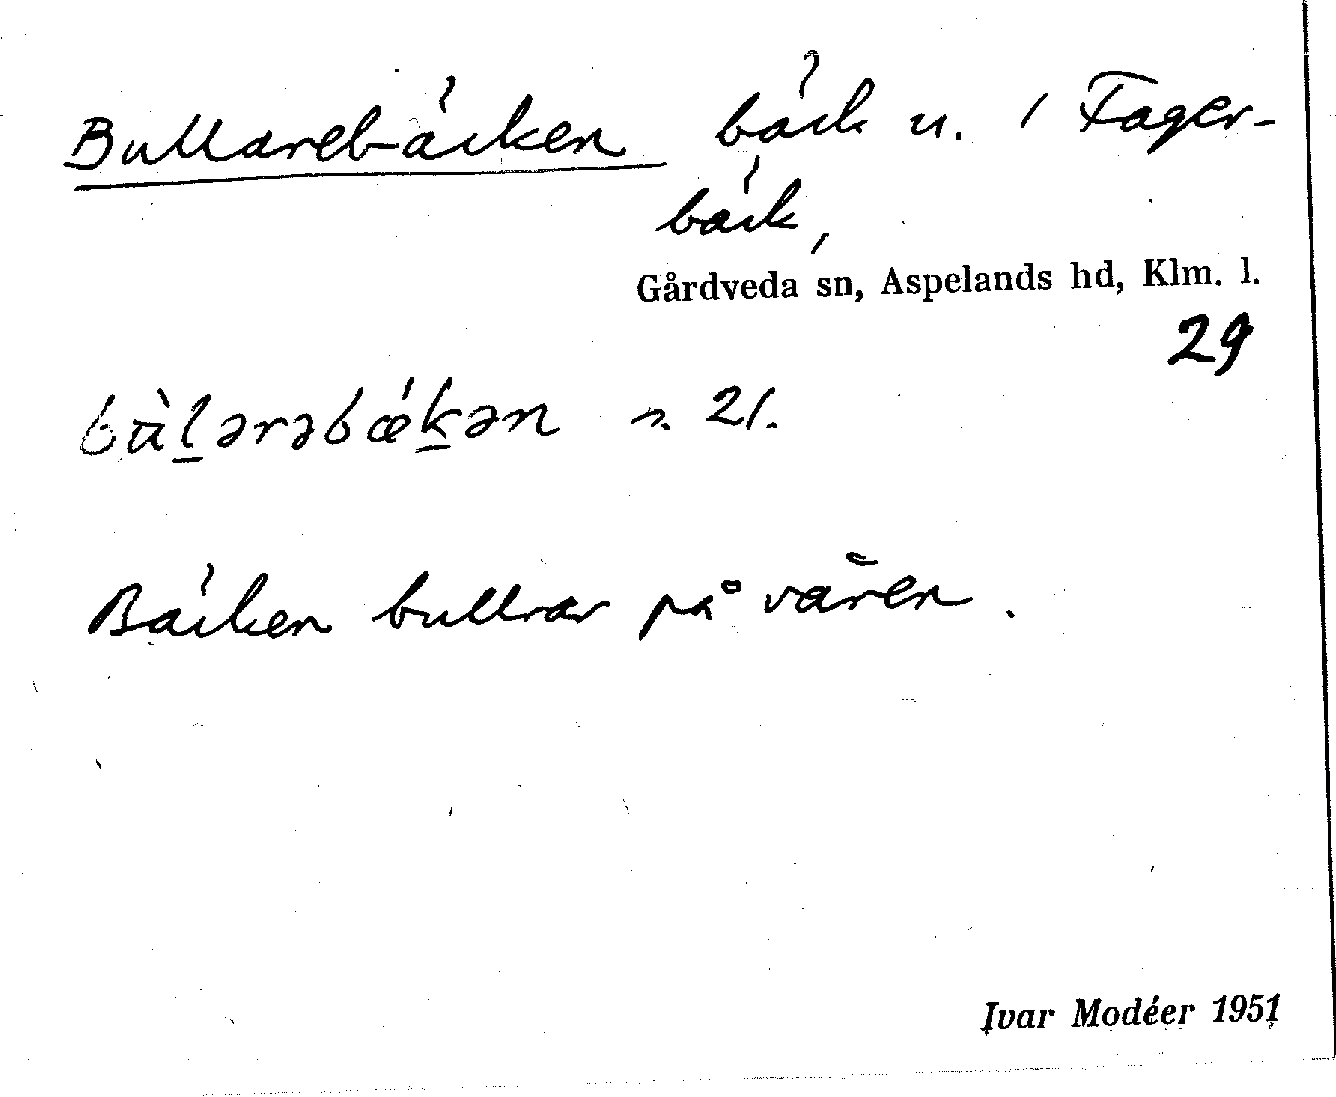 Bullarebäcken bäck u. / Fager-
bäck,
Gårdveda sn, Aspelands hd, Klm. l.
29
bu̇̀l̠ərəbǽk̠ən n. 21.
Bäcken bullrar på våren.
Ivar Modéer 1951